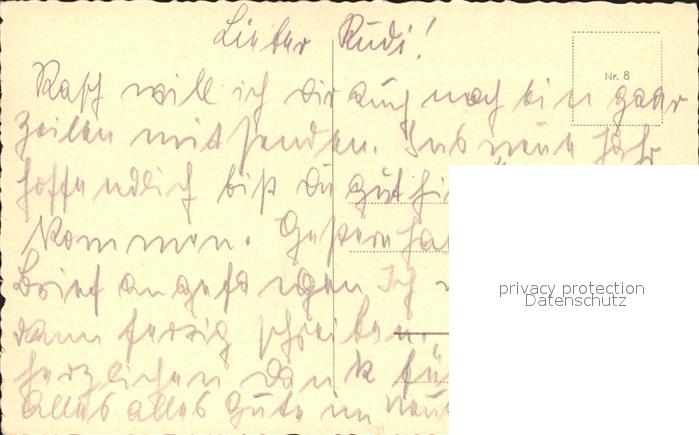 Lieber Rudi!
Nr. 8
Rasch will ich dir auch noch ein paar
Zeilen mitsenden. Ins neue Jahr
hoffendlich bist du gut hi
kommen. Gestern ha
Brief angefangen Ich
dann fertig schreiben.
herzlichen Dank fü
alles alles Gute im neue
privacy protection
Datenschutz